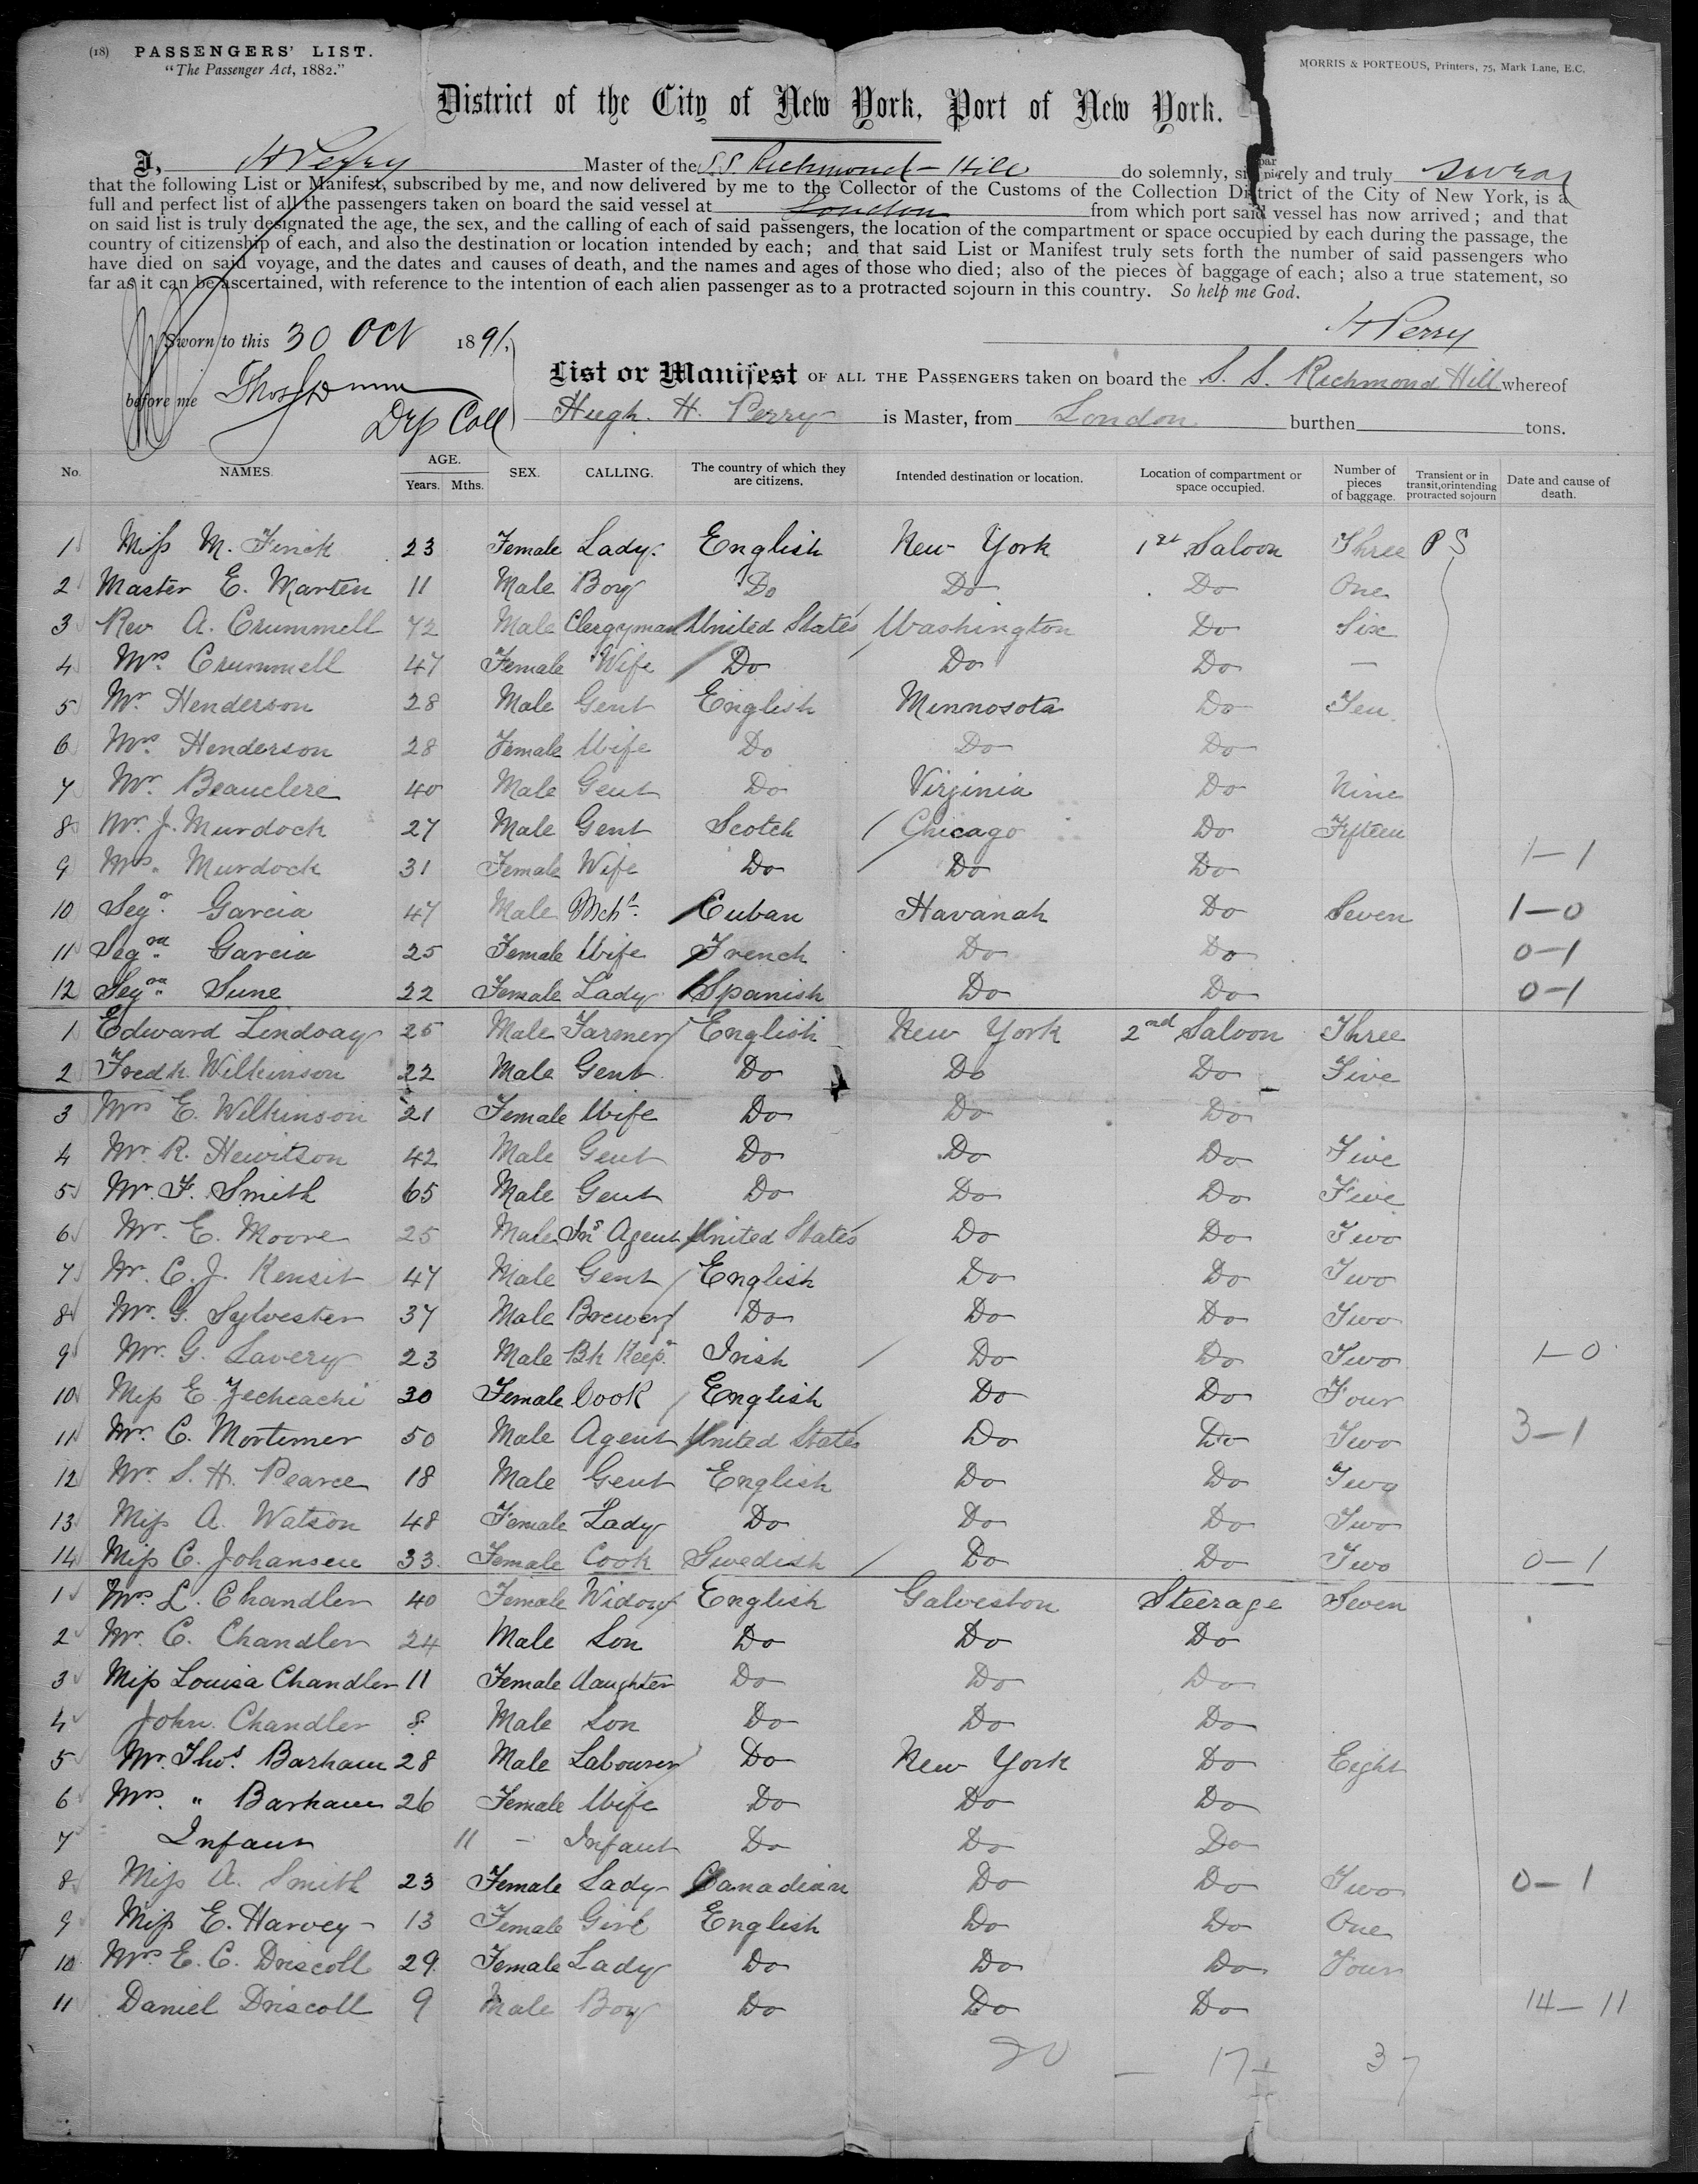 (18) PASSENGERS' LIST.
"The Passenger Act, 1882."
MORRIS & PORTEOUS, Printers, 75, Mark Lane, E.C.
District of the City of New York, Port of New York.
I, H Perry Master of the S.S. Richmond-Hill do solemnly, sincerely and truly swear
that the following List or Manifest, subscribed by me, and now delivered by me to the Collector of the Customs of the Collection District of the City of New York, is a
full and perfect list of all the passengers taken on board the said vessel at London from which port said vessel has now arrived; and that
on said list is truly designated the age, the sex, and the calling of each of said passengers, the location of the compartment or space occupied by each during the passage, the
country of citizenship of each, and also the destination or location intended by each; and that said List or Manifest truly sets forth the number of said passengers who
have died on said voyage, and the dates and causes of death, and the names and ages of those who died; also of the pieces of baggage of each; also a true statement, so
far as it can be ascertained, with reference to the intention of each alien passenger as to a protracted sojourn in this country. So help me God.
H Perry
Sworn to this 30 Oct 1891.
before me Thos Dunn
Dep Coll
List or Manifest OF ALL THE PASSENGERS taken on board the S. S. Richmond Hill whereof
Hugh. H. Perry is Master, from London burthen tons.
No. NAMES. AGE. Years. Mths. SEX. CALLING. The country of which they are citizens. Intended destination or location. Location of compartment or space occupied. Number of pieces of baggage. Transient or in transit, or intending protracted sojourn Date and cause of death.
1 Miss M. Finck 23 Female Lady. English New York 1st Saloon Three P S
2 Master E. Marten 11 Male Boy Do Do Do One
3 Rev A. Crummell 72 Male Clergyman United States Washington Do Six
4 Mrs. Crummell 47 Female Wife Do Do Do —
5 Mr. Henderson 28 Male Gent English Minnosota Do Ten
6 Mrs. Henderson 28 Female Wife Do Do Do
7 Mr. Beauclere 40 Male Gent Do Virginia Do Nine
8 Mr. J. Murdock 27 Male Gent Scotch Chicago Do Fifteen
9 Mrs. Murdock 31 Female Wife Do Do Do 1-1
10 Segr. Garcia 47 Male Mcht. Cuban Havanah Do Seven 1-0
11 Segra. Garcia 25 Female Wife French Do Do 0-1
12 Segra. Sune 22 Female Lady Spanish Do Do 0-1
1 Edward Lindsay 25 Male Farmer English New York 2nd Saloon Three
2 Fredk. Wilkinson 22 Male Gent. Do Do Do Five
3 Mrs E. Wilkinson 21 Female Wife Do Do Do
4 Mr. R. Hewitson 42 Male Gent Do Do Do Five
5 Mr. F. Smith 65 Male Gent Do Do Do Five
6 Mr. E. Moore 25 Male Ins Agent United States Do Do Two
7 Mr. C. J. Kensit 47 Male Gent English Do Do Two
8 Mr. G. Sylvester 37 Male Brewer Do Do Do Two
9 Mr. G. Lavery 23 Male Bk Keepr. Irish Do Do Two 1-0
10 Miss E. 30 Female Cook English Do Do Four
11 Mr. C. Mortimer 50 Male Agent United States Do Do Two 3-1
12 Mr. S. H. Pearce 18 Male Gent English Do Do Two
13 Miss A. Watson 48 Female Lady Do Do Do Two
14 Miss C. Johansen 33. Female Cook Swedish Do Do Two 0-1
1 Mrs. L. Chandler 40 Female Widow English Galveston Steerage Seven
2 Mr. C. Chandler 24 Male Son Do Do Do
3 Miss Louisa Chandler 11 Female daughter Do Do Do
4 John. Chandler 8 Male Son Do Do Do
5 Mr. Thos. Barham 28 Male Labourer Do New York Do Eight
6 Mrs. " Barham 26 Female Wife Do Do Do
7 Infant 11 - Infant Do Do Do
8 Miss A. Smith 23 Female Lady Canadian Do Do Two 0-1
9 Miss E. Harvey 13 Female Girl English Do Do One
10 Mrs E. C. Driscoll 29 Female Lady Do Do Do Four
11 Daniel Driscoll 9 Male Boy Do Do Do 14-11
20 - 17 37